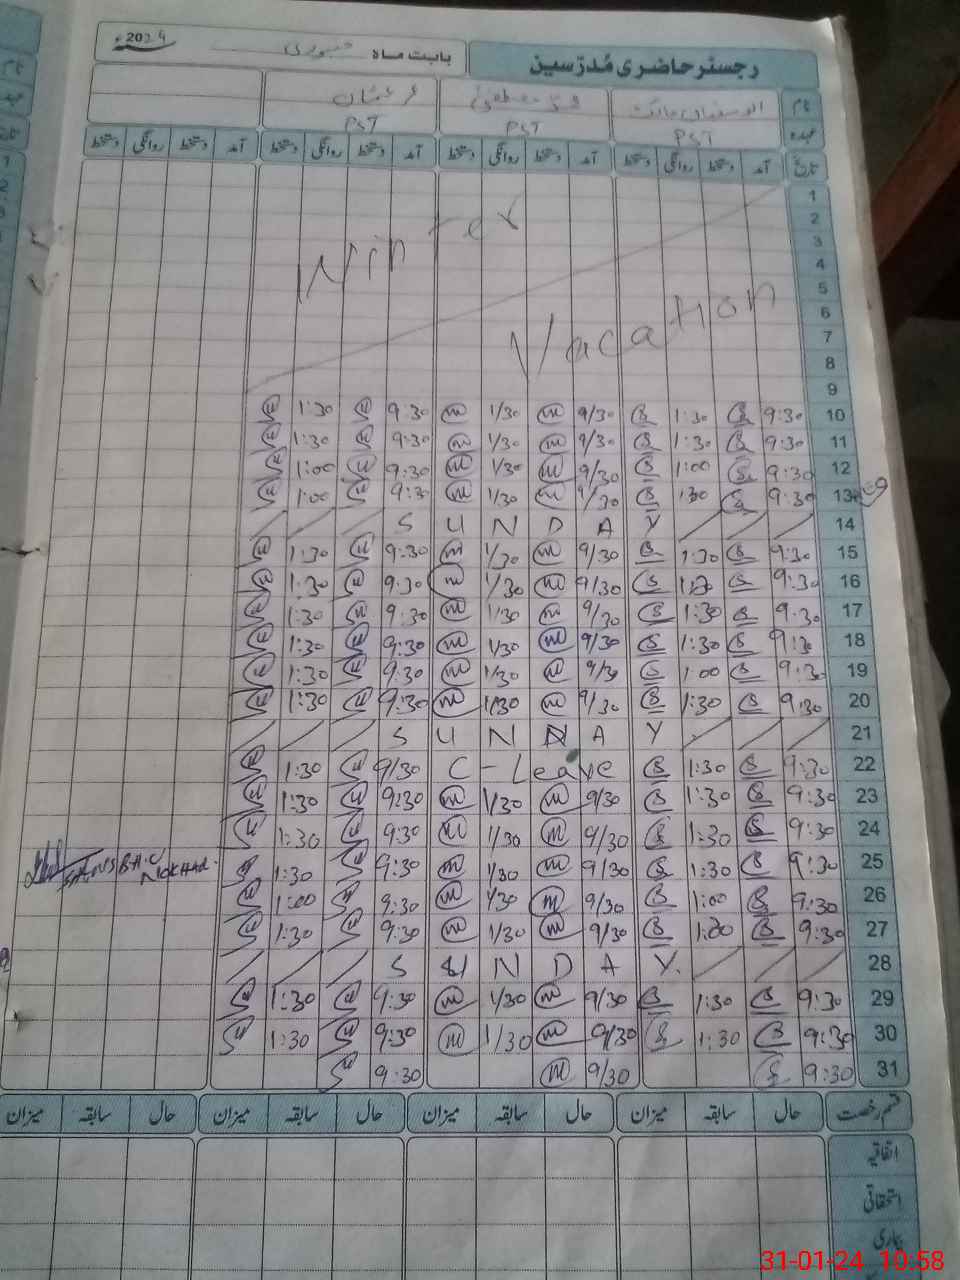 رجسٹر حاضری مُدرّسین بابت ماہ جنوری 2024ء
نام
عہدہ PST PST PST
تاریخ آمد دستخط روانگی دستخط آمد دستخط روانگی دستخط آمد دستخط روانگی دستخط آمد دستخط روانگی دستخط
1
2
3
4
5
6
7
8
9
Winter
Vacation
10 9:30 1:30 9/30 1/30 9:30 1:30
11 9:30 1:30 9/30 1/30 9:30 1:30
12 9:30 1:00 9/30 1/30 9:30 1:00
13 9:30 1:30 9/30 1/30 9:30 1:00
14 S U N D A Y
15 9:30 1:30 9/30 1/30 9:30 1:30
16 9:30 1:30 9/30 1/30 9:30 1:30
17 9:30 1:30 9/30 1/30 9:30 1:30
18 9:30 1:30 9/30 1/30 9:30 1:30
19 9:30 1:00 9/30 1/30 9:30 1:30
20 9:30 1:30 9/30 1/30 9:30 1:30
21 S U N N A Y
22 9:30 1:30 C-Leave 9/30 1:30
23 9:30 1:30 9/30 1/30 9:30 1:30
24 9:30 1:30 9/30 1/30 9:30 1:30
25 9:30 1:30 9/30 1/30 9:30 1:30
26 9:30 1:00 9/30 1/30 9:30 1:00
27 9:30 1:00 9/30 1/30 9:30 1:30
28 S U N D A Y
29 9:30 1:30 9/30 1/30 9:30 1:30
30 9:30 1:30 9/30 1/30 9:30 1:30
31 9:30 9/30 9:30
قسم رخصت حال سابقہ میزان حال سابقہ میزان حال سابقہ میزان حال سابقہ میزان
اتفاقیہ
استحقاقی
بیماری
31-01-24 10:58